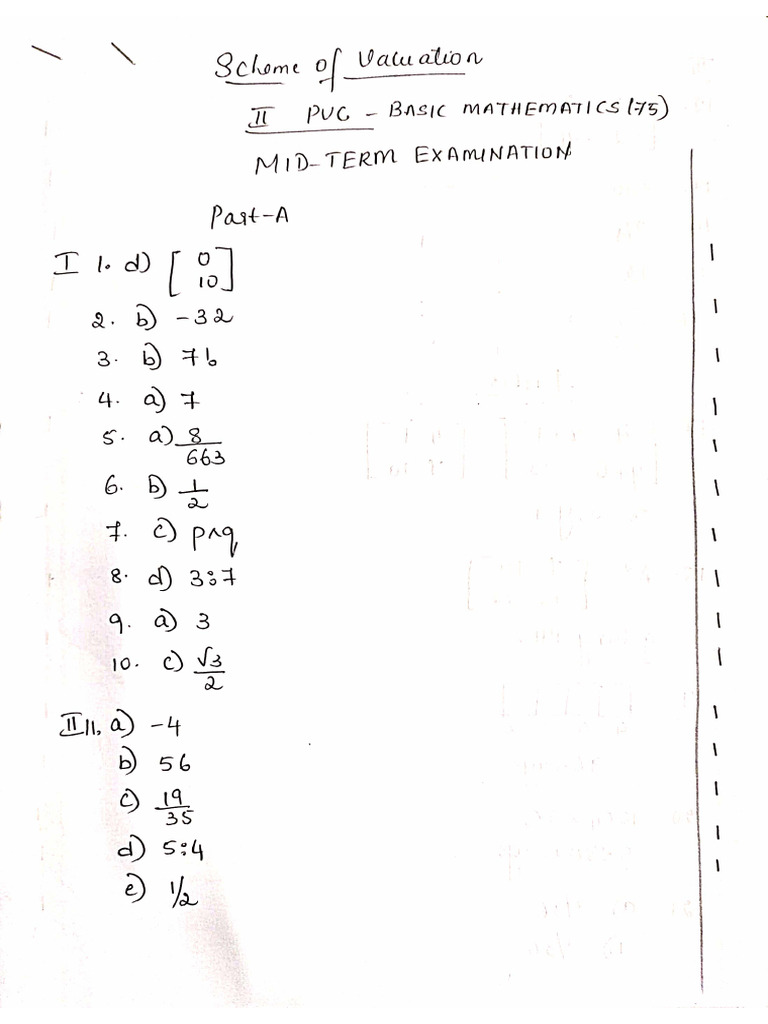 Scheme of Valuation
II PUC - BASIC MATHEMATICS (75)
MID-TERM EXAMINATION
Part-A
I 1. d) [0 10] 1
2. b) -32 1
3. b) 76 1
4. a) 7 1
5. a) 8/663 1
6. b) 1/2 1
7. c) p∧q 1
8. d) 3:7 1
9. a) 3 1
10. c) √3/2 1
II 11. a) -4 1
b) 56 1
c) 19/35 1
d) 5:4 1
e) 1/2 1